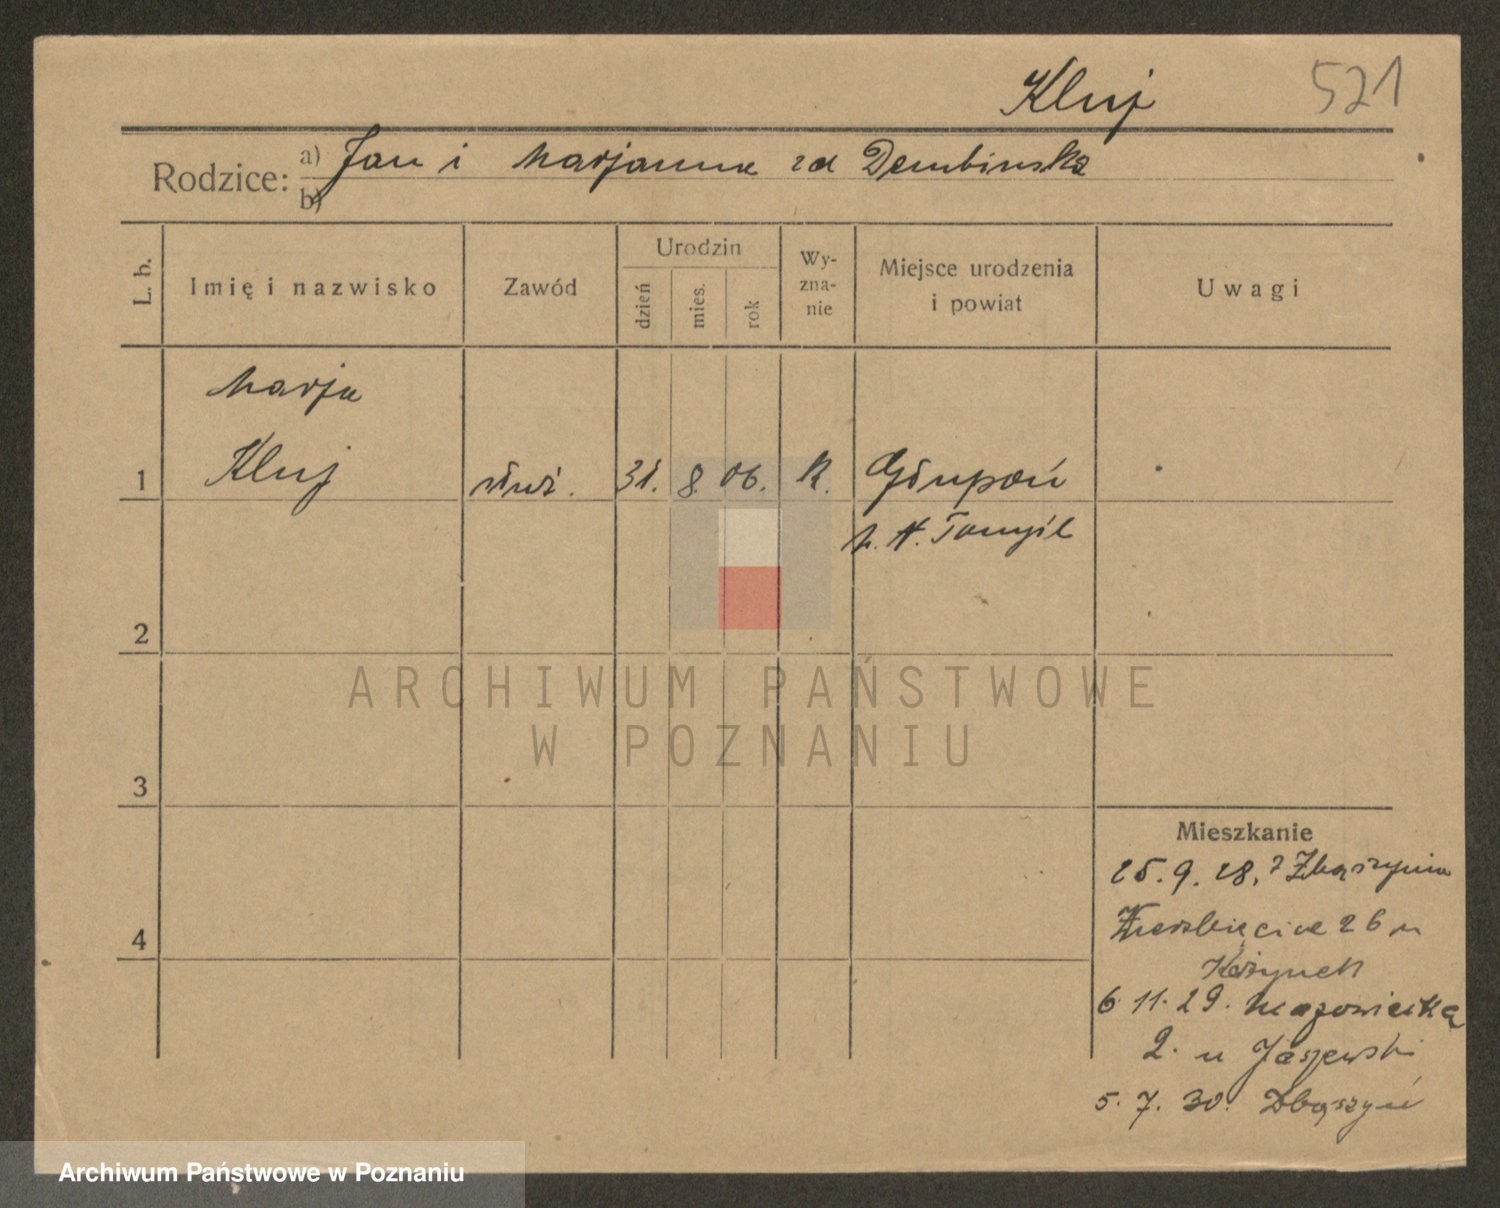 Kluj 521
Rodzice: a) Jan i Marjanna zd Dembinska
b)
L. b. Imię i nazwisko Zawód Urodzin dzień mies. rok Wy-zna-nie Miejsce urodzenia i powiat Uwagi
Marja
1 Kluj służ. 31. 8. 06. K. Głupoń
p. N. Tomyśl
2
ARCHIWUM PAŃSTWOWE
W POZNANIU
3
Mieszkanie
25.9.28, z Zbąszynia
Wierzbięcice 26 u
4
6.11.29. Mazowiecką
2. u Jaszewski
5.7.30. Zbąszyń
Archiwum Państwowe w Poznaniu